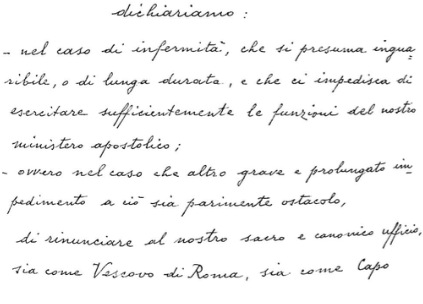 dichiariamo:
- nel caso di infermità, che si presuma ingua=
ribile, o di lunga durata, e che ci impedisca di
esercitare sufficientemente le funzioni del nostro
ministero apostolico;
- ovvero nel caso che altro grave e prolungato im=
pedimento a ciò sia parimente ostacolo,
di rinunciare al nostro sacro e canonico ufficio,
sia come Vescovo di Roma, sia come Capo